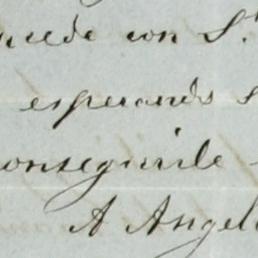 cede con S.
esperando s
conseguirle
A Angel